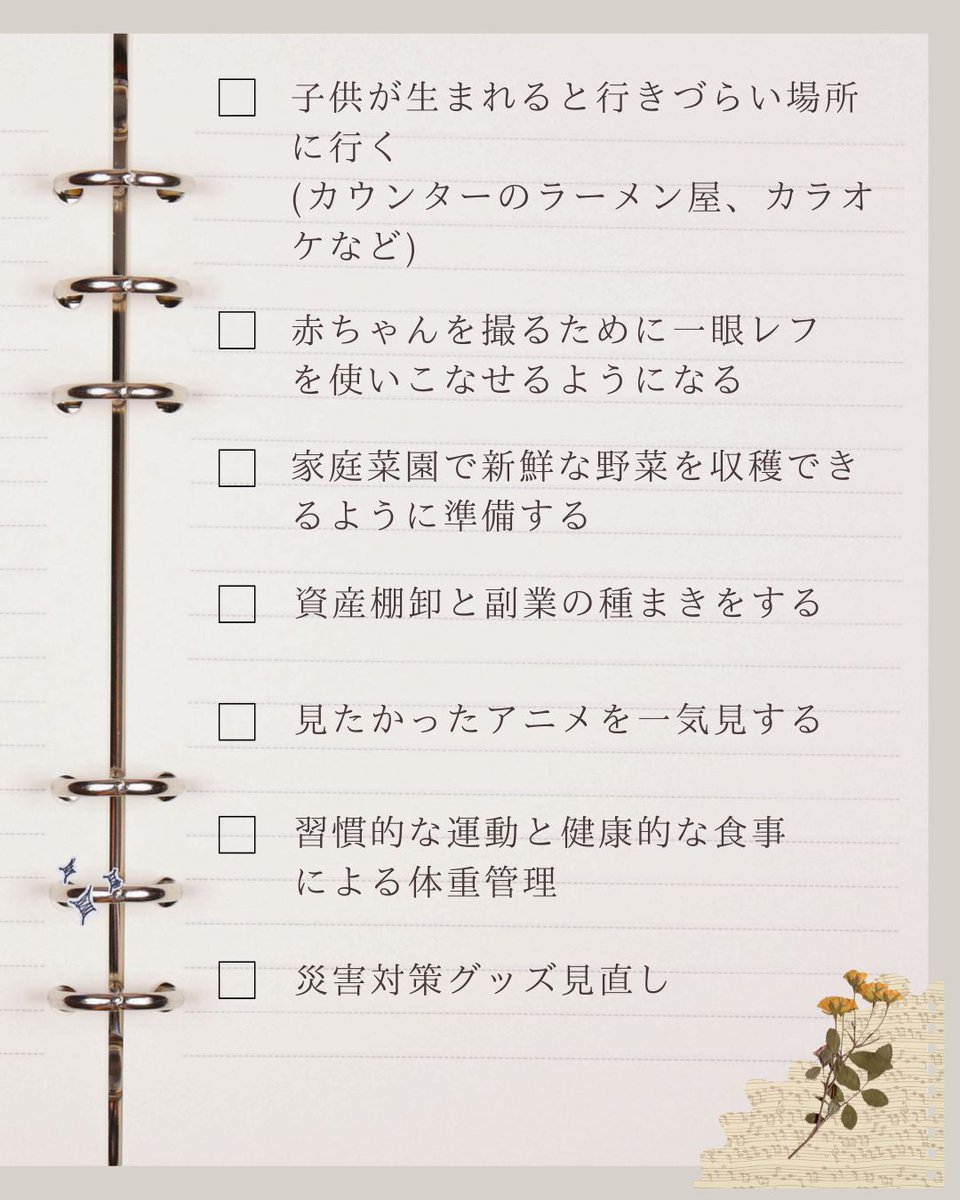 子供が生まれると行きづらい場所
に行く
(カウンターのラーメン屋、カラオ
ケなど)
赤ちゃんを撮るために一眼レフ
を使いこなせるようになる
家庭菜園で新鮮な野菜を収穫でき
るように準備する
資産棚卸と副業の種まきをする
見たかったアニメを一気見する
習慣的な運動と健康的な食事
による体重管理
災害対策グッズ見直し